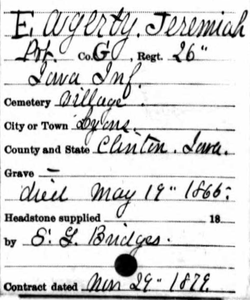 Eagerty, Jeremiah
Pvt. Co. G, Regt. 26"
Iowa Inf.
Cemetery Village.
City or Town Lyons.
County and State Clinton, Iowa.
Grave —
died May 19" 1866.
Headstone supplied 18
by S. G. Bridges.
Contract dated Nov 29" 1879.